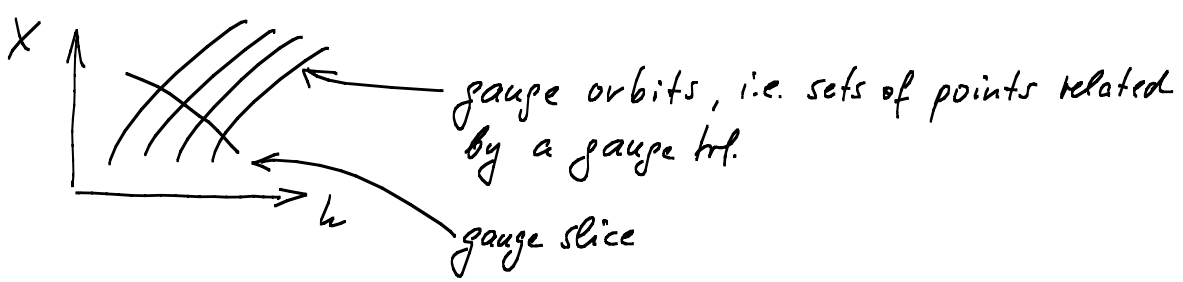 X
gauge orbits, i.e. sets of points related
by a gauge trf.
h
gauge slice